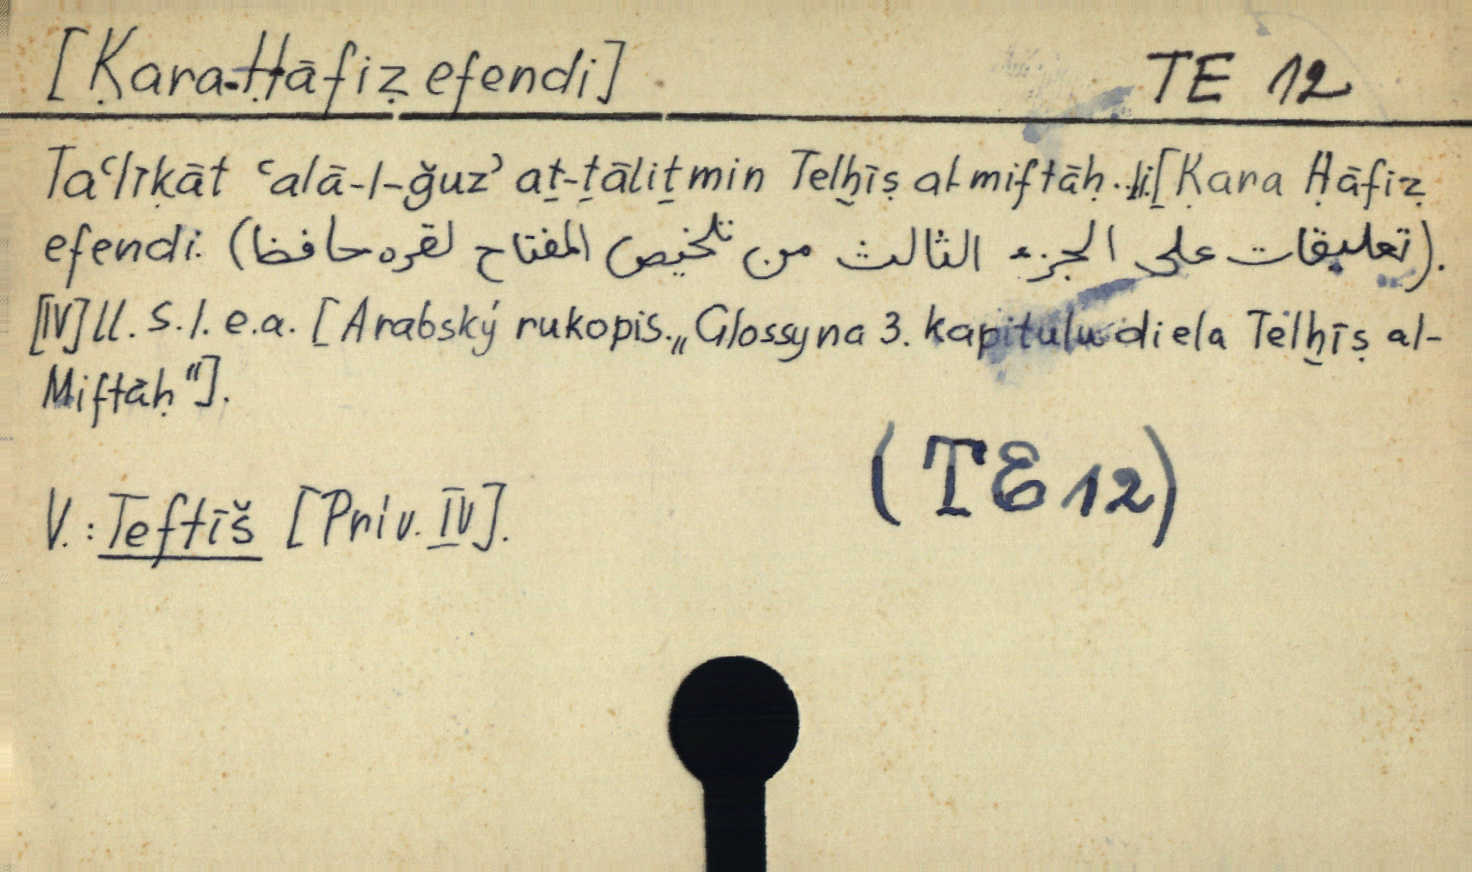 [Ḳara-Ḥāfiẓ efendi] TE 12
Taʿlīḳāt ʿalā-l-ǧuzʾ aṯ-ṯāliṯ min Telḫīṣ al-miftāḥ. li [Ḳara Ḥāfiẓ
efendi. (تعليقات على الجزء الثالث من تلخيص المفتاح لقره حافظ).
[IV] ll. s. l. e. a. [Arabský rukopis. „Glossy na 3. kapitulu diela Telḫīṣ al-
Miftāḥ"].
(TE 12)
V.: Teftīš [Prív. IV].